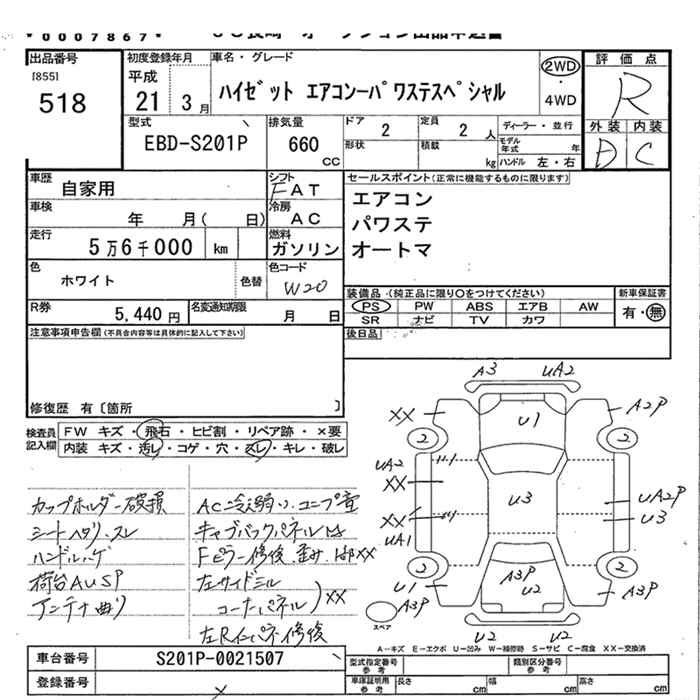 00007867
出品番号
[855]
518
初度登録年月
平成
21 3 月
車名・グレード
ハイゼット エアコンーパワステスペシャル
2WD
4WD
評価点
R
外装 内装
D C
型式
EBD-S201P
排気量
660
CC
ドア
2
形状
定員
2 人
積載
kg
ディーラー・並行
モデル年式 年
ハンドル 左・右
車歴
自家用
シフト
FAT
車検
年 月( 日)
冷房
AC
走行
5万6千000 km
燃料
ガソリン
色
ホワイト
色替
色コード
W20
R券
5,440 円
名変通知期限
月 日
セールスポイント(正常に機能するものに限ります)
エアコン
パワステ
オートマ
装備品・(純正品に限り○をつけてください)
PS PW ABS エアB AW
SR ナビ TV カワ
新車保証書
有・無
後日品
注意事項申告欄(不具合内容等は具体的に記入して下さい)
修復歴 有〔箇所 〕
検査員
記入欄
FW キズ・飛石・ヒビ割・リペア跡・×要
内装 キズ・汚レ・コゲ・穴・スレ・キレ・破レ
カップホルダー破損
シートヘタリ・スレ
ハンドルハゲ
荷台AUSP
アンテナ曲り
AC冷え弱い、コンプ音
キャブバックパネル
Fピラー修復、歪み XX
左サイドシル
コーナーパネル XX
左Rインパネ修復
A3 UA2
XX
U1
A2P
2
2
UA2
XX
XX
UA1
U3
UA2P
U3
2
2
U1
A3P
U2
A3P
A3P
U2 U2
スペア
A-キズ E-エクボ U-凹み W-補修跡 S-サビ C-腐食 XX-交換済
車台番号
S201P-0021507
登録番号
型式指定番号
参考
類別区分番号
参考
車庫証明用
参考
長さ cm
幅 cm
高さ cm